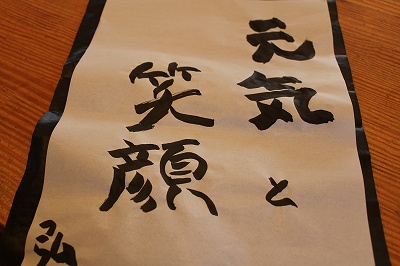 元気と
笑顔
弘